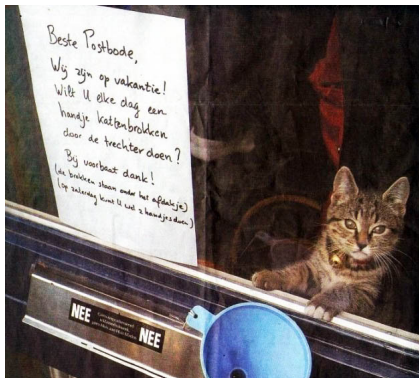 Beste Postbode,
Wij zijn op vakantie!
Wilt U elke dag een
handje kattenbrokken
door de trechter doen?
Bij voorbaat dank!
(de brokken staan onder het afdakje)
(op zaterdag kunt U wel 2 handjes doen)
NEE
NEE